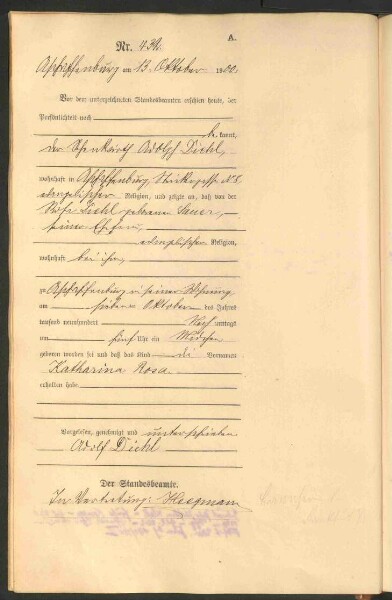 A.
Nr. 432.
Aschaffenburg am 13. Oktober 1900.
Vor dem unterzeichneten Standesbeamten erschien heute, der
Persönlichkeit nach
kannt,
der Schenkwirth Adolph Diehl,
wohnhaft in Aschaffenburg,
evangelischer Religion, und zeigte an, daß von der
Diehl geborene Sauer,
seiner Ehefrau,
evangelischer Religion,
wohnhaft bei ihm,
zu Aschaffenburg in seiner Wohnung
am siebenten Oktober des Jahres
tausend neunhundert Nachmittags
um fünf Uhr ein Mädchen
geboren worden sei und daß das Kind die Vornamen
Katharina Rosa
erhalten habe
Vorgelesen, genehmigt und unterschrieben
Adolf Diehl
Der Standesbeamte.
In Vertretung: